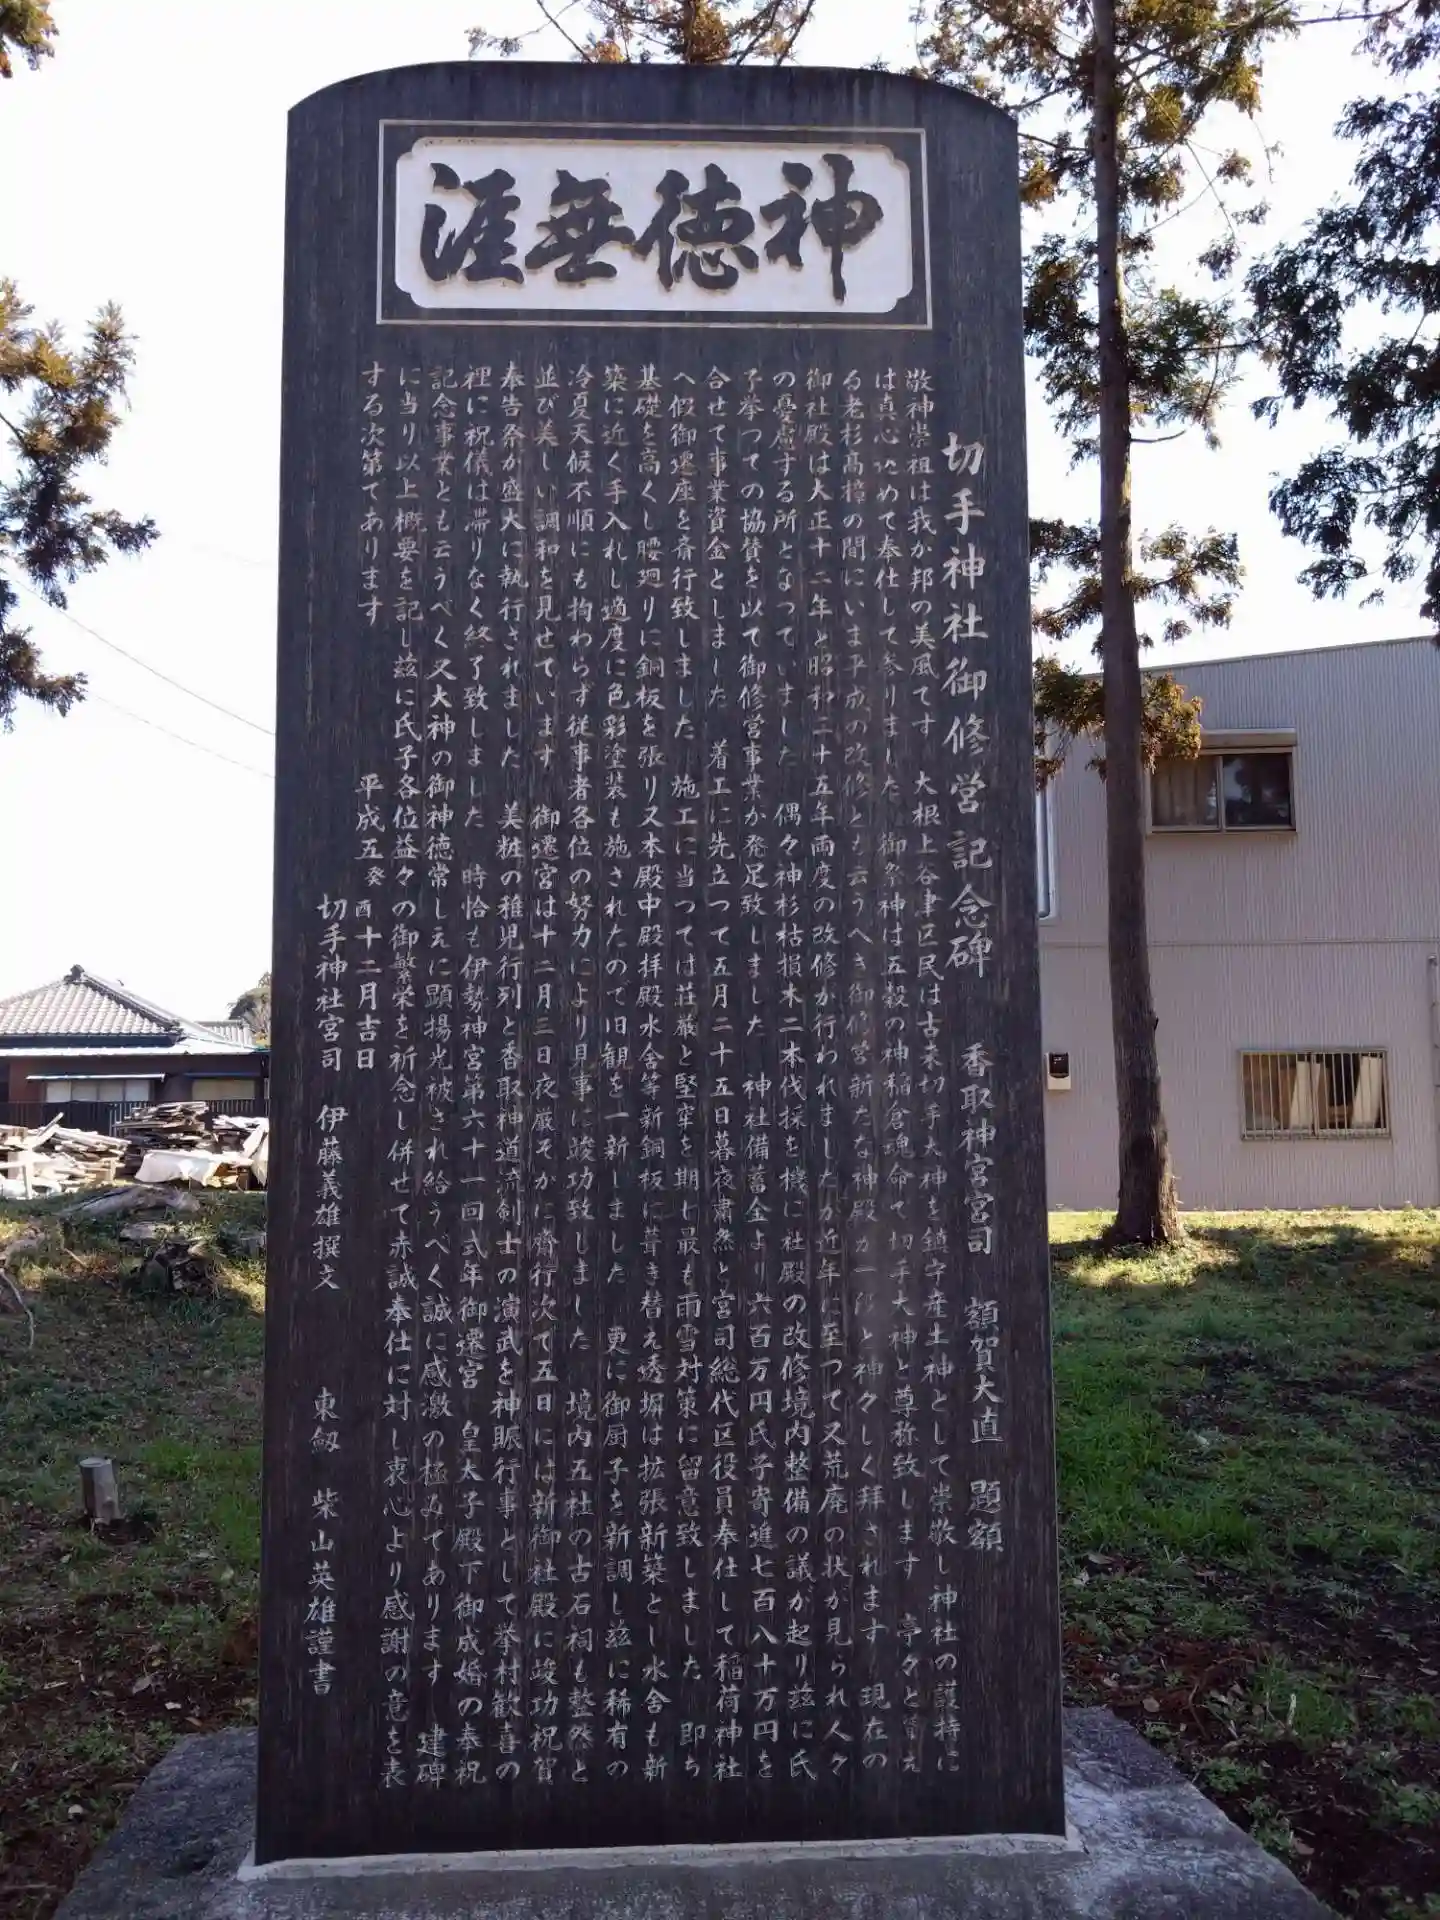 神徳無涯
切手神社御修営記念碑　香取神宮宮司　額賀大直　題額
敬神崇祖は我か邦の美風てす　大根上谷津区民は古来切手大神を鎮守産土神として崇敬し神社の護持に
は真心こめて奉仕して参りました　御祭神は五穀の神稲倉魂命て切手大神と尊称致します　亭々と聳え
る老杉高樟の間にいま平成の改修とも云うへき御修営新たな神殿か一段と神々しく拝されます　現在の
御社殿は大正十二年と昭和二十五年両度の改修か行われましたか近年に至つて又荒廃の状が見られ人々
の憂慮する所となつていました　偶々神杉枯損木二本伐採を機に社殿の改修境内整備の議が起り茲に氏
子挙つての協賛を以て御修営事業か発足致しました　神社備蓄金より六百万円氏子寄進七百八十万円を
合せて事業資金としました　着工に先立つて五月二十五日暮夜粛然と宮司総代区役員奉仕して稲荷神社
へ假御遷座を斎行致しました　施工に当つては荘厳と堅牢を期し最も雨雪対策に留意致しました　即ち
基礎を高くし腰廻りに銅板を張り又本殿中殿拝殿水舎等新銅板に葺き替え透塀は拡張新築とし水舎も新
築に近く手入れし適度に色彩塗装も施されたので旧観を一新しました　更に御厨子を新調し茲に稀有の
冷夏天候不順にも拘わらず従事者各位の努力により見事に竣功致しました　境内五社の古石祠も整然と
並び美しい調和を見せています　御遷宮は十二月三日夜厳そかに斎行次て五日には新御社殿に竣功祝賀
奉告祭か盛大に執行されました　美粧の稚児行列と香取神道流剣士の演武を神賑行事として挙村歓喜の
裡に祝儀は滞りなく終了致しました　時恰も伊勢神宮第六十一回式年御遷宮　皇太子殿下御成婚の奉祝
記念事業とも云うべく又大神の御神徳常しえに顕揚光被され給うべく誠に感激の極みてあります　建碑
に当り以上概要を記し茲に氏子各位益々の御繁栄を祈念し併せて赤誠奉仕に対し衷心より感謝の意を表
する次第であります
平成五癸酉十二月吉日
切手神社宮司　伊藤義雄撰文　東釼　柴山英雄謹書